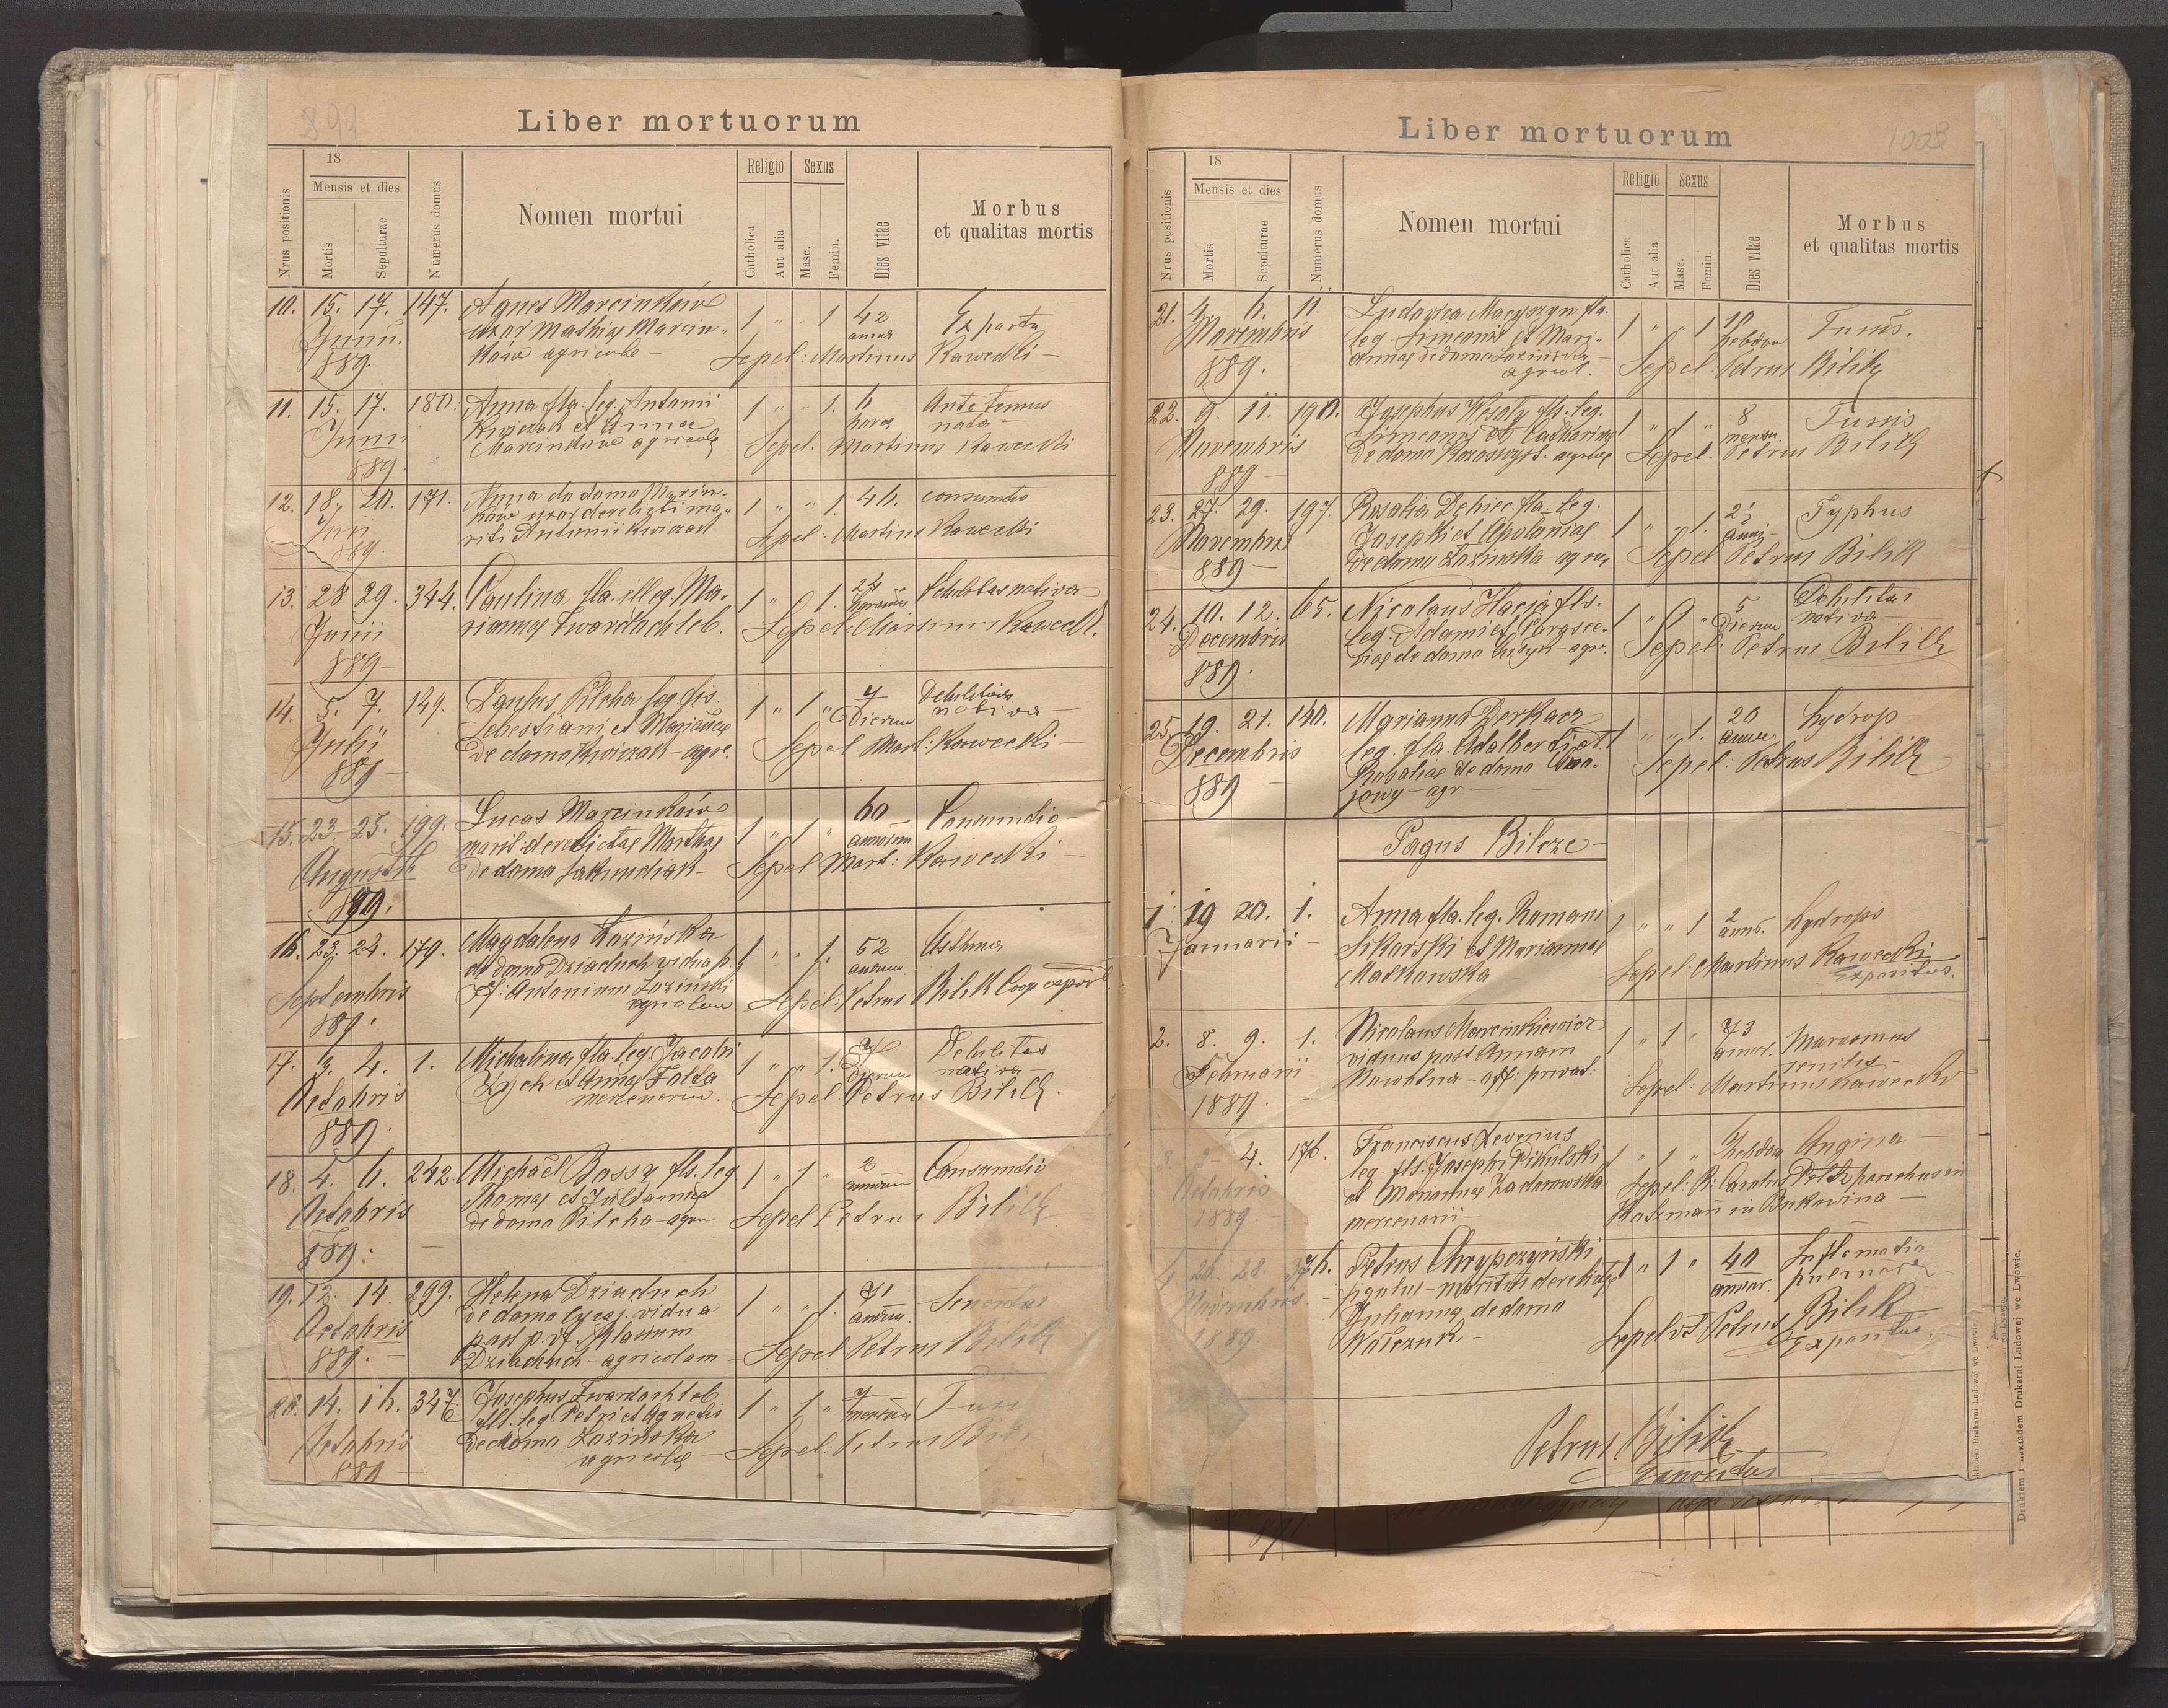 Liber mortuorum
18
Mensis et dies
Nrus positionis
Mortis
Sepulturae
Numerus domus
Nomen mortui
Religio
Catholica
Aut alia
Sexus
Masc.
Femin.
Dies vitae
Morbus
et qualitas mortis
10. 15. 17. 147. Agnes Marcinków 1 " " 1 42 Ex partu
Junii uxor Mathiae Marcin- annor
889. ków agricolae - Sepel: Martinus Kawecki -
11. 15. 17. 180. Anna fla. leg. Antonii 1 " " 1. 6 Ante temus
Junii Kwiczak et Annae hores nata -
889. Marcinków agricolae Sepel: Martinus Kawecki
12. 18. 20. 171. Anna de domo Marcin- 1 " " 1. 46. consumtio
Jun. ków uxor derelicti ma-
889. riti Antonii Kwiczak Sepel: Martinus Kawecki
13. 28 29. 344. Paulina fla. illeg. Ma- 1 " 1. 24 Debilitas nativa
Junii riannae Twardochleb. horarum Sepel: Martinus Kaweck.
889 -
14. 5. 7. 149. Paulus Pilcha leg. fls. 1 " 1 " 7 Debilitas
Julii Sebestiani et Mariannae Dierum nativa -
889 - de domo Kwiczak - agr. Sepel Mart: Kawecki -
15. 23. 25. 199. Lucas Marcinków 1 " 1 " 60 Consumtio -
Augusti marit. derelictae Marthae annorum
889. de domo Sakundiak - Sepel Mart: Kawecki -
16. 23. 24. 179. Magdalena Łozińska 1 " " 1. 52 Asthma
Septembris de domo Dziaduch vidua p. annorum
889. Antonium Łoziński
agricolam Sepel: Petrus Bilik Coop expos.
17. 3. 4. 1. Michalina fla. leg. Jacobi 1 " " 1. 7 Debilitas
Octobris Zych et Anna Folta Dierum nativa -
889. mercenarior. Sepel Petrus Bilik.
18. 4. 6. 242. Michaël Bossy fls. leg 1 " 1 " 2 Consumtio
Octobris Thomae et Juliannae annorum
889. de domo Pilcha - agr Sepel Petrus Bilik
19. 12. 14. 299. Helena Dziaduch 1 " " 1. 71
Octobris de domo vidua annorum
889. - post p. df. Blasium
Dziaduch - agricolam - Sepel Petrus Bilik
20. 14. 16. 347. Josephus Twardochleb 1 " 1 " 7
Octobris fls. leg. Petri et Agnetis mensium
889 - de domo Łozińska
agricolae - Sepel: Petrus Bili
1003
Liber mortuorum
18
Mensis et dies
Nrus positionis
Mortis
Sepulturae
Numerus domus
Nomen mortui
Religio
Catholica
Aut alia
Sexus
Masc.
Femin.
Dies vitae
Morbus
et qualitas mortis
21. 4. 6. 11. Ludovica Macyszyn fla. 1 " " 1 10 Tussis.
Novembris leg. Simeonis et Mari- hebdom
889. annae de domo Łozińska -
agricol. Sepel: Petrus Bilik
22. 9. 11. 190. Josephus Wesoły fls. leg. 1 " 1 " 8 Tussis
Novembris Simeonis et Catharinae mensi.
889 - de domo agricolae Sepel: Petrus Bilik
23. 27. 29. 197. Rosalia Dębiec fla. leg. 1 " " 1. 2½ Typhus
Novembris Josephi et Apoloniae anni -
889 - de domo Łozińska - agr Sepel Petrus Bilik
24. 10. 12. 65. Nicolaus fls. 1 " " 5 Debilitas
Decembris leg. Adami et Parasce- Dierum nativa -
889. viae de domo agr. Sepel: Petrus Bilik
25. 19. 21. 140. Marianna Derkacz 1 " " 1. 20 hydrop -
Decembris leg. fla. Adalberti et annor.
889 Rosaliae de domo Sepel: Petrus Bilik
jowy - agr -
Pagus Bilcze -
1 19 20. 1. Anna fla. leg. Romani 1 " " 1 2 hydrops
Januarii - Sikorski et Mariannae anno.
Małkowska - Sepel: Martinus Kawecki
Expositus.
2. 8. 9. 1. Nicolaus Marcinkiewicz 1 " 1 " 73 marasmus
Februarii viduus post Annam annor. senilis -
1889. - off: privat: Sepel: Martinus Kawecki
3. 2. 4. 176. Franciscus Xeverius 1 " 1 " hebdom Angina
Octobris leg. fls. Josephi Pikulski
1889. - et Mariannae Zadorowska Sepel: parochus in
mercenarii - Kotzmań in Bukowina -
4 26. 28. 376. Petrus Chrypczyński 1 " 1 " 40
Novembris. figulus - maritus derelictae annor.
1889. Julianna de domo
Walczuk. - Sepelvt Petrus Bilik
Expositus.
Petrus Bilik
Expositus
Drukiem i nakładem Drukarni Ludowej we Lwowie.